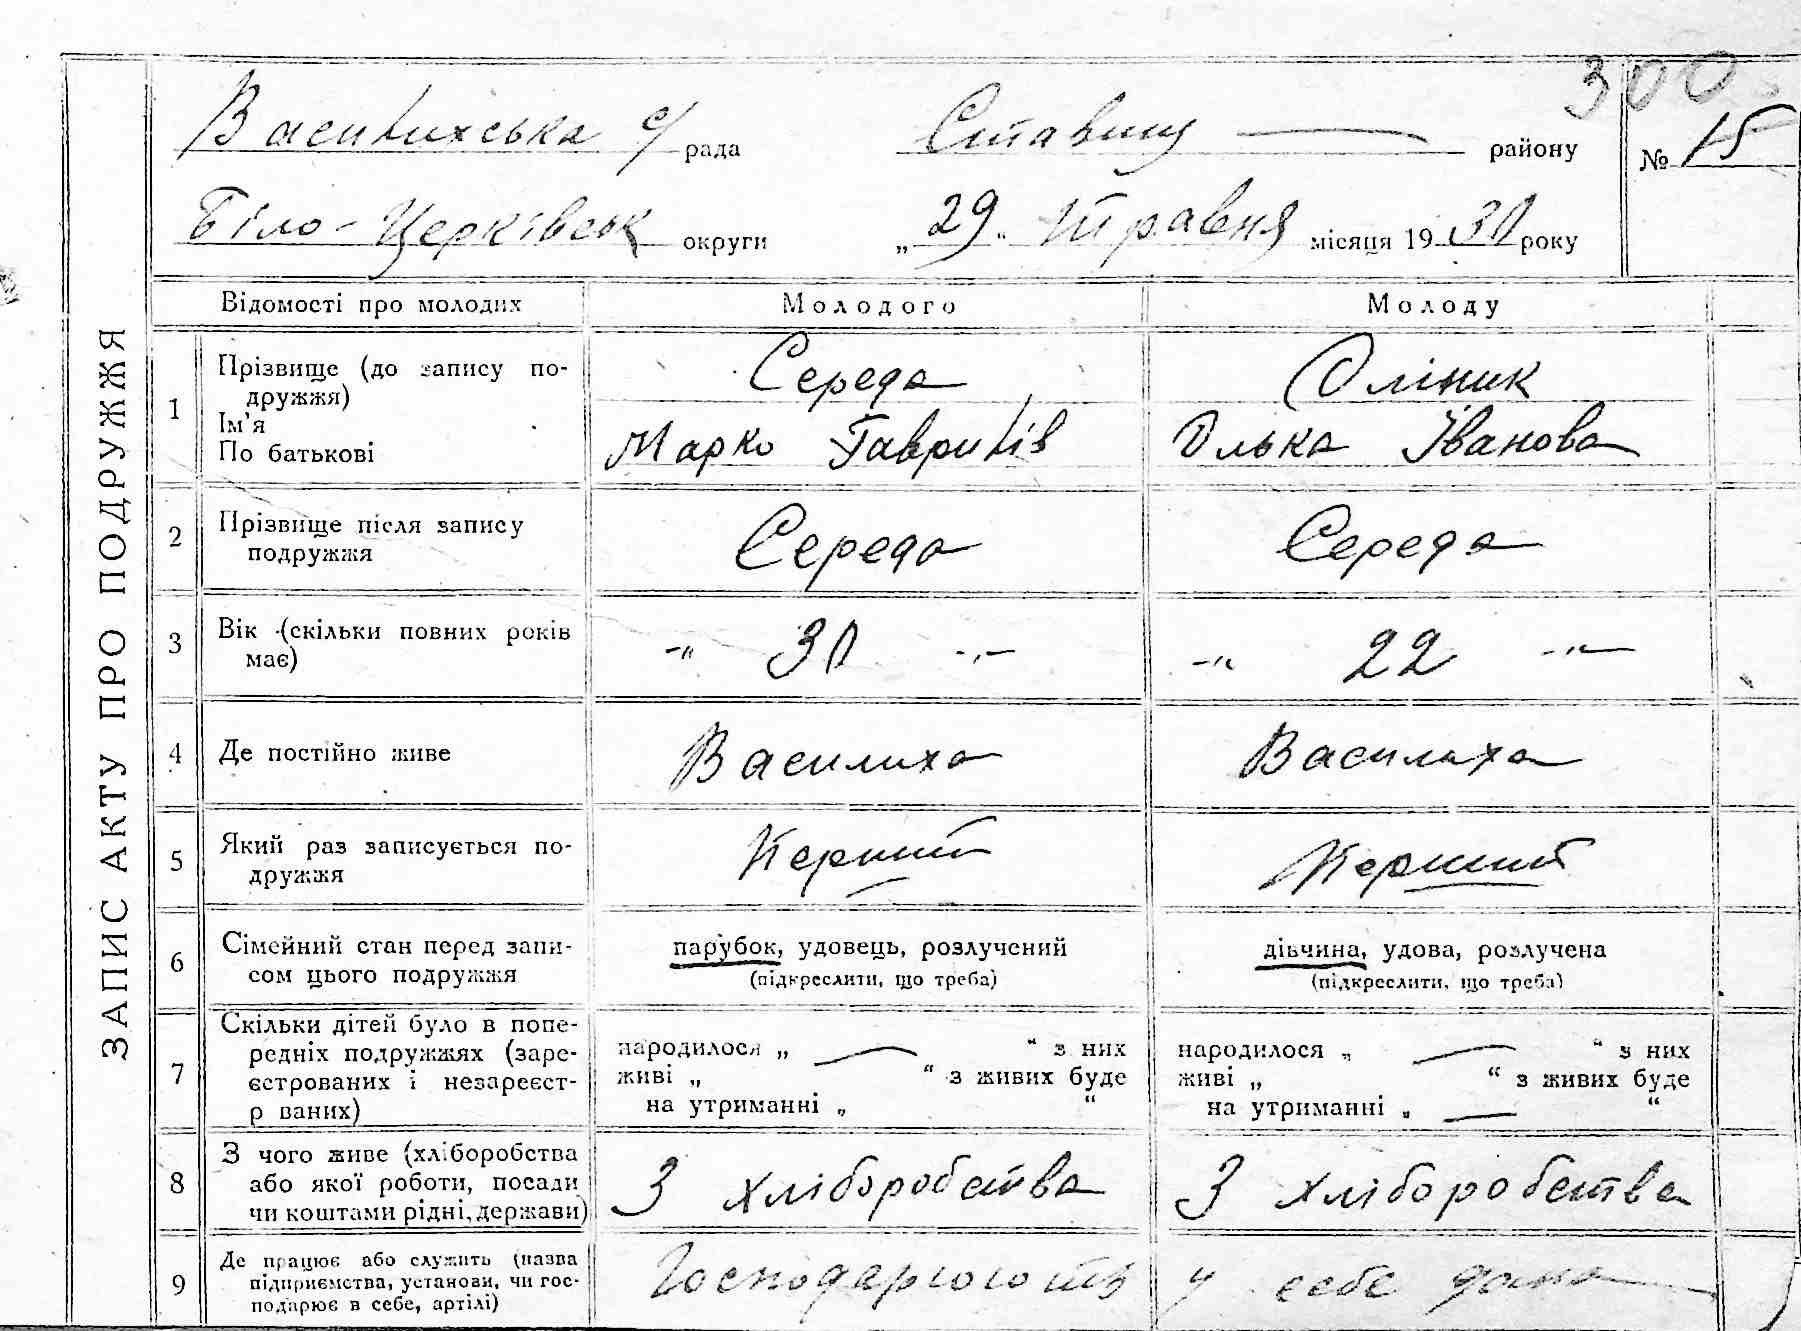 300
Василихська с/ рада Ставищ району № 15
Біло-Церківськ округи „29“ Травня місяця 1930 року
ЗАПИС АКТУ ПРО ПОДРУЖЖЯ
Відомості про молодих Молодого Молоду
1 Прізвище (до запису по- Середа Оліник
дружжя)
Ім'я Марко Гаврилів Олька Іванова
По батькові
2 Прізвище після запису Середа Середа
подружжя
3 Вік (скільки повних років -„ 30 -„- -„ 22 -„-
має)
4 Де постійно живе Василиха Василиха
5 Який раз записується по- Перший Перший
дружжя
6 Сімейний стан перед запи- парубок, удовець, розлучений дівчина, удова, розлучена
сом цього подружжя (підкреслити, що треба) (підкреслити, що треба)
7 Скільки дітей було в попе-
редніх подружжях (заре- народилося „ — “ з них народилося „ — “ з них
єстрованих і незареєст- живі „ “ з живих буде живі „ “ з живих буде
р ваних) на утриманні „ “ на утриманні „ — “
8 З чого живе (хліборобства
або якої роботи, посади З хліборобства З хліборобства
чи коштами рідні, держави)
9 Де працює або служить (назва Господарюють у себе дома
підприємства, установи, чи гос-
подарює в себе, артілі)